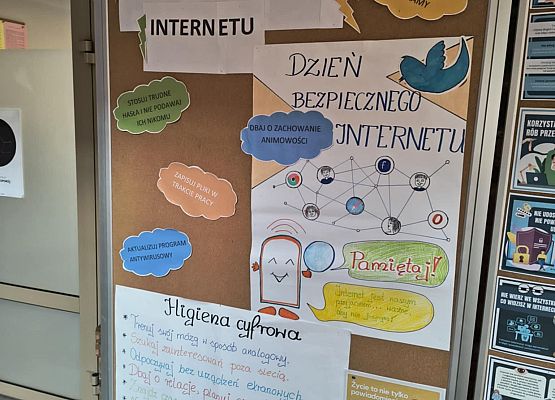 INTERNETU
DZIEŃ
BEZPIECZNEGO
INTERNETU
STOSUJ TRUDNE
HASŁA I NIE PODAWAJ
ICH NIKOMU
DBAJ O ZACHOWANIE
ANIMOWOŚCI
ZAPISUJ PLIKI W
TRAKCIE PRACY
AKTUALIZUJ PROGRAM
ANTYWIRUSOWY
Pamiętaj!
Internet jest naszym
Higiena cyfrowa
* Trenuj swój mózg w sposób analogowy.
* Szukaj zainteresowań poza siecią.
* Odpoczywaj bez urządzeń ekranowych
* Dbaj o relacje, planuj
Życie to nie tylko
powiadomienia
KORZYSTA
RÓB PRZE
NIE UDOS
NIE WIERZ WE WSZYSTK
CO WIDZISZ W INTERN